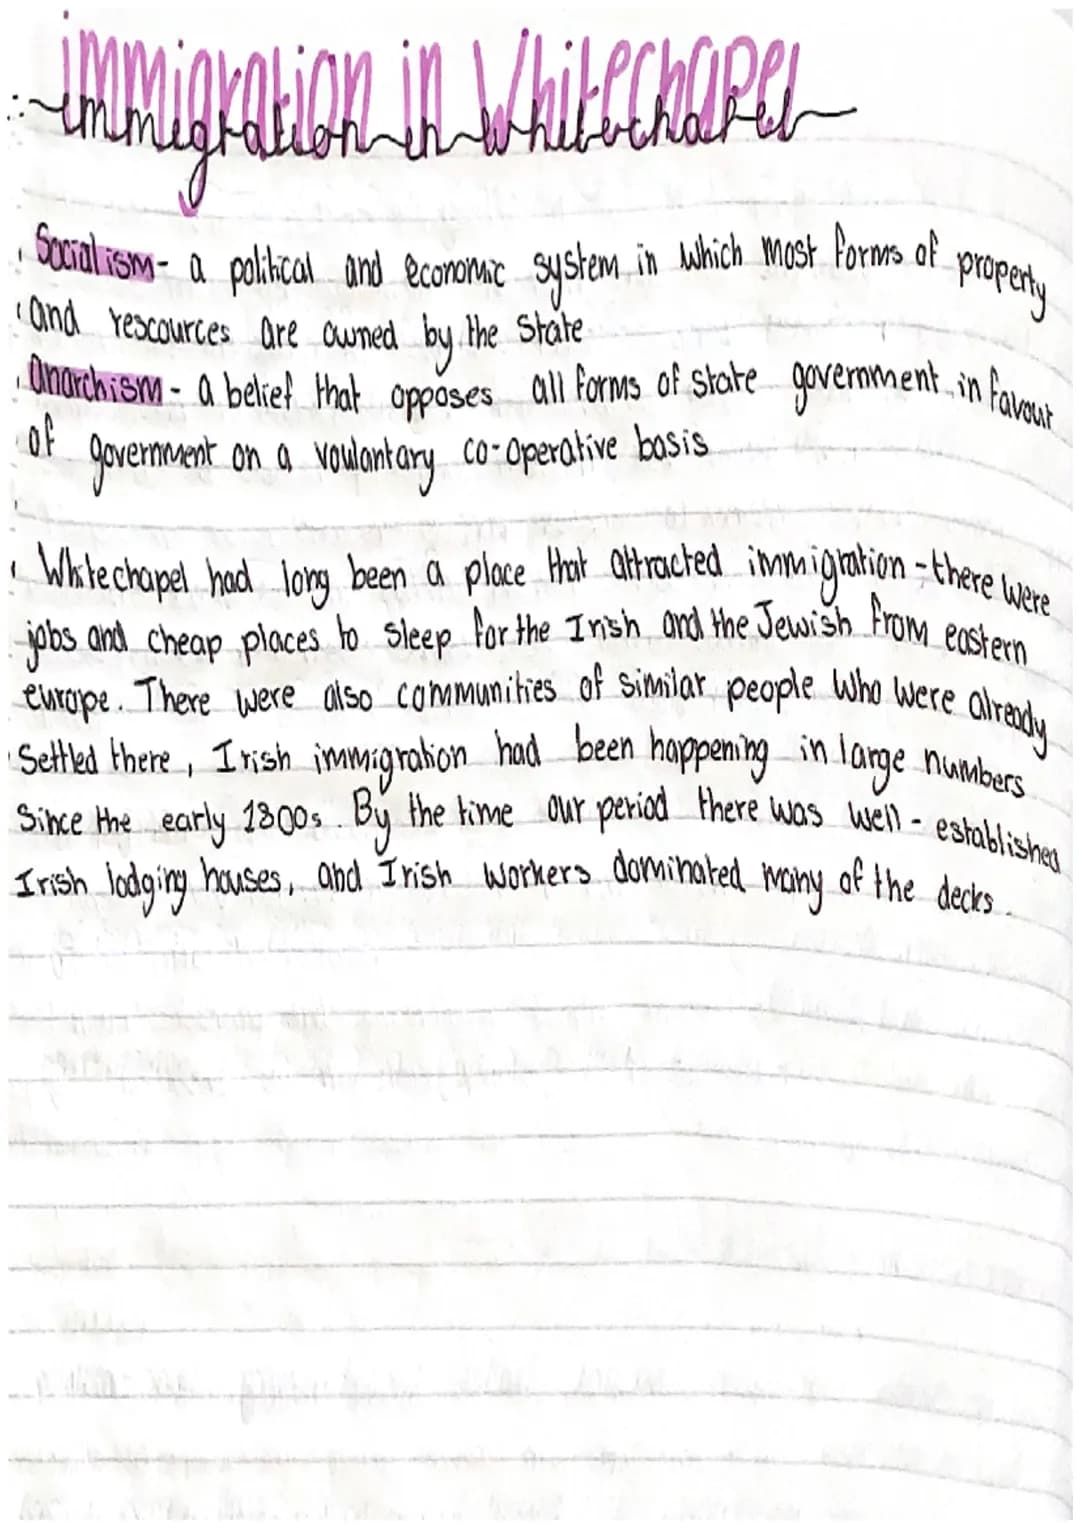 immigration in Whitechapel
immigration in whitechapel
Socialism- a political and economic system in which most forms of property
and rescources are owned by the State
anarchism - a belief that opposes all forms of state government in favour
of government on a voulantary co-operative basis
Whitechapel had long been a place that attracted immigration - there were
jobs and cheap places to sleep for the Irish and the Jewish from eastern
europe. There were also communities of similar people who were already
Settled there, Irish immigration had been happening in large numbers
Since the early 1800s. By the time our period there was well - established
Irish lodging houses, and Irish workers dominated many of the docks.